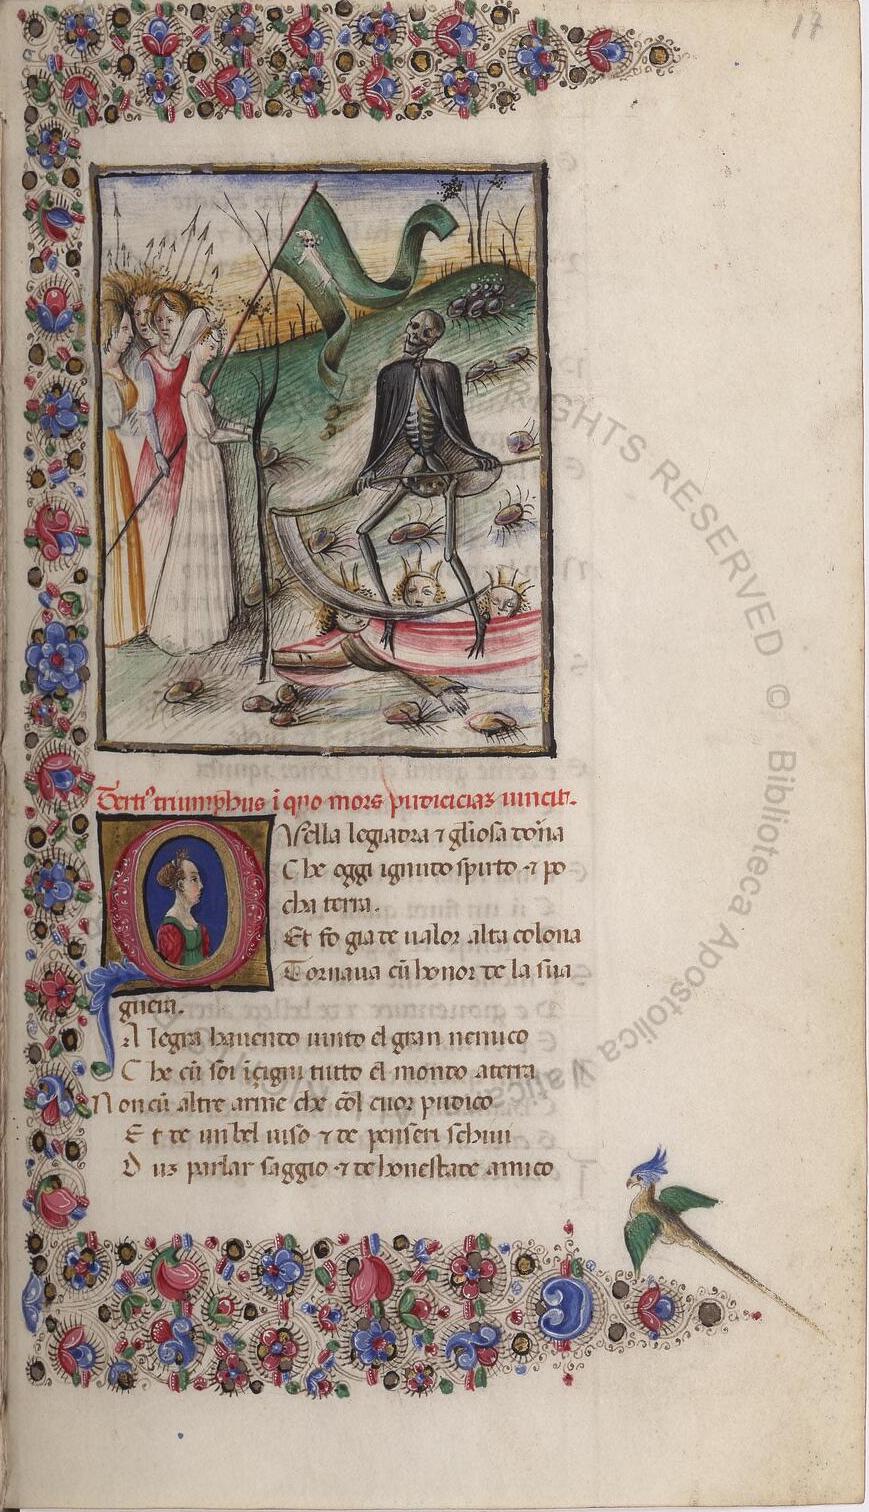 17
Terti⁹ triumphus ĩ quo mors pudiciciaʒ uincit.
QVella legiadra ⁊ gl̃iosa dõna
Che oggi ignudo spirto ⁊ po
cha terra.
Et fo gia de ualor alta colõna
Tornaua cũ honor de la sua
guera.
Alegra hauendo uinto el gran nemico
Che cũ soi ĩgigni tutto el mondo aterra
Non cũ altre arme che col cuor pudico
Et de un bel uiso ⁊ de penseri schiui
Duʒ parlar saggio ⁊ de honestade amico
RIGHTS RESERVED © Biblioteca Apostolica Vaticana